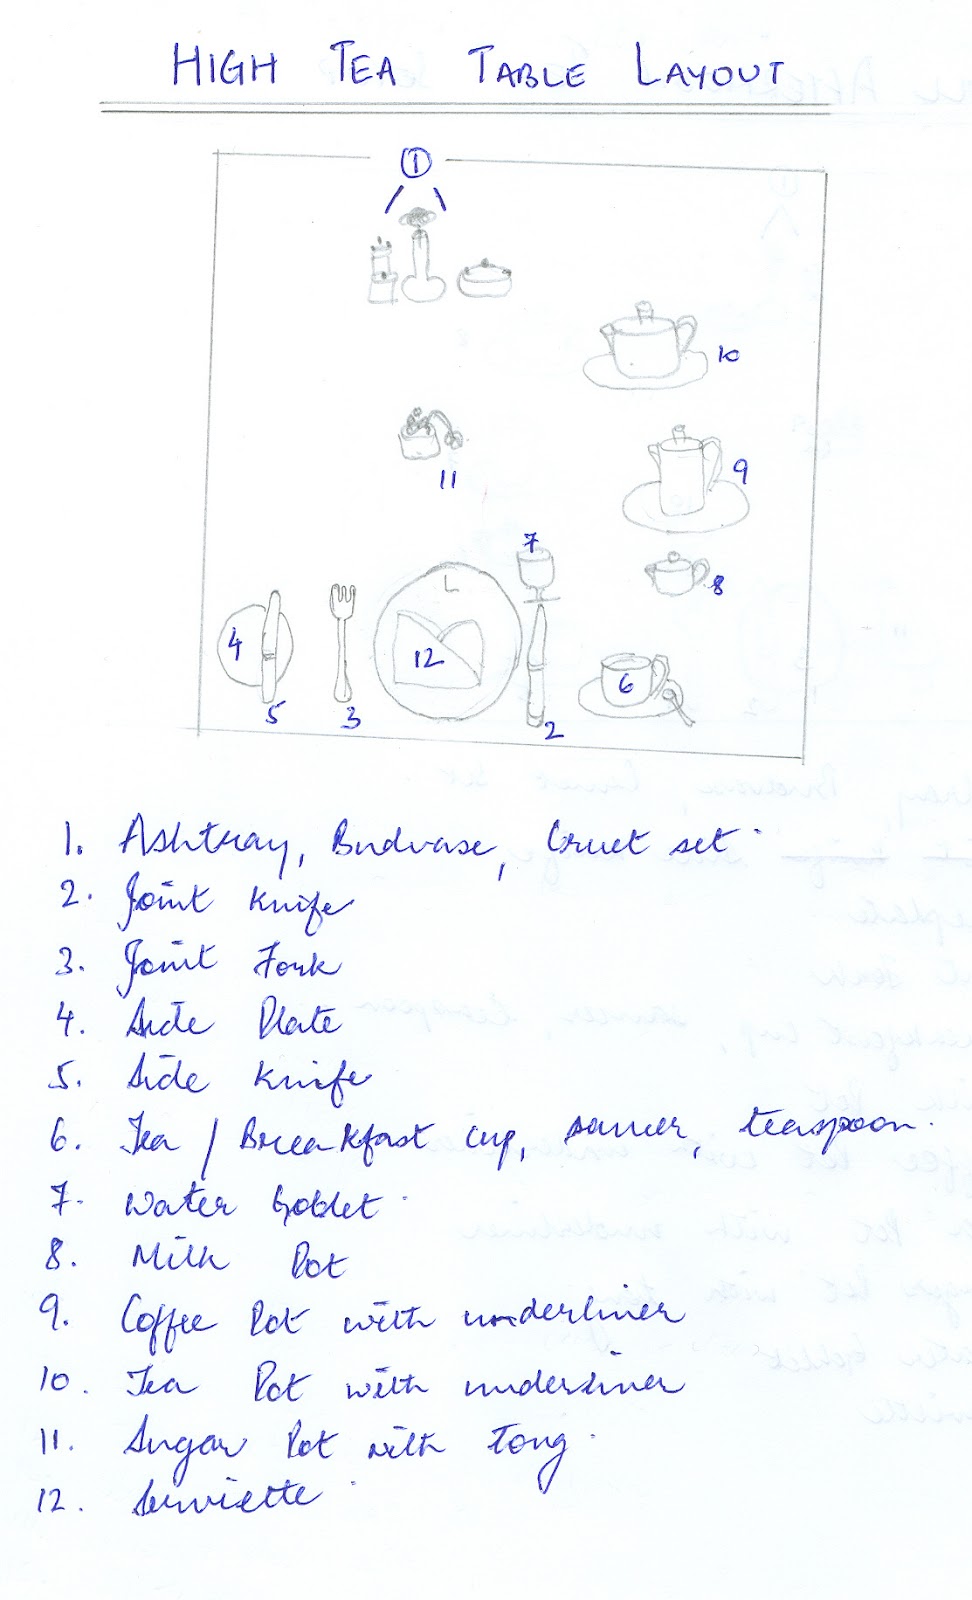 HIGH TEA TABLE LAYOUT
1
10
11
9
7
8
L
4
12
6
5
3
2
1. Ashtray, Budvase, Cruet set.
2. Joint Knife
3. Joint Fork
4. Side Plate
5. Side Knife
6. Tea / Breakfast cup, saucer, teaspoon.
7. Water Goblet.
8. Milk Pot
9. Coffee Pot with underliner
10. Tea Pot with underliner
11. Sugar Pot with Tong.
12. Serviette